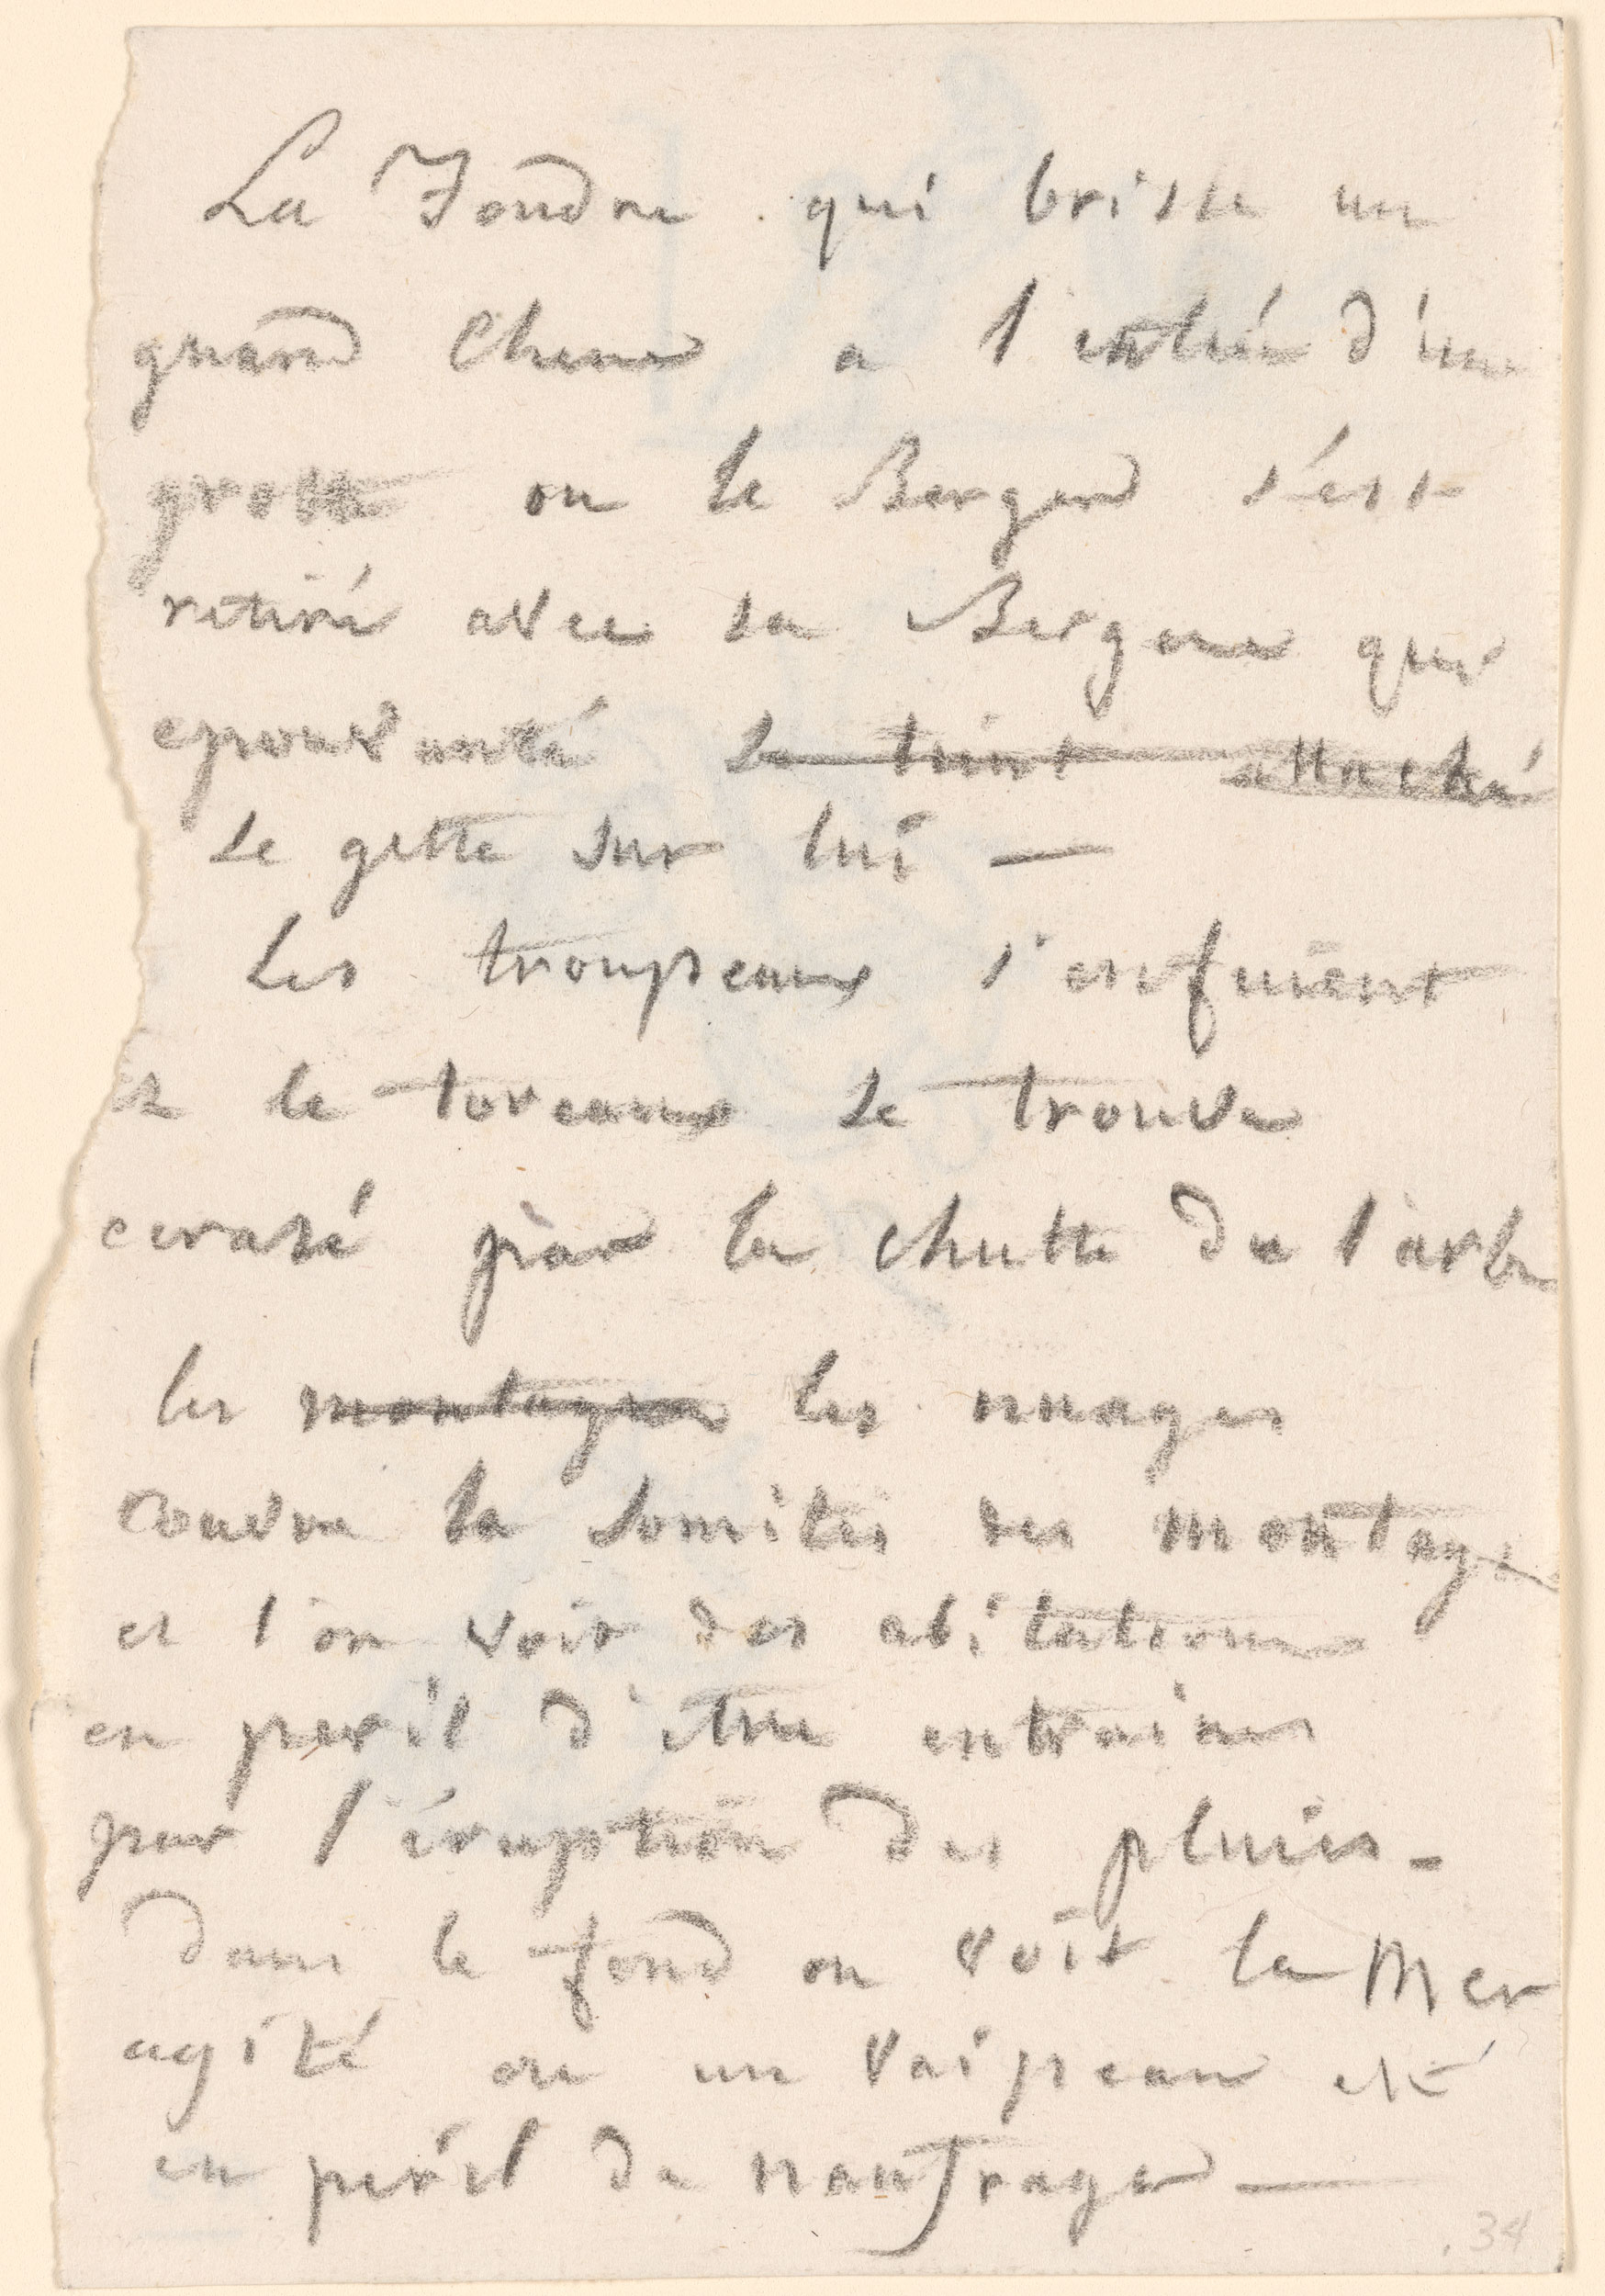 La Foudre qui brisse un
grand Chene a l'entrée d'une
grotte ou le Berger s'est
retiré avec sa Bergere qui
epouvanté se tient attaché
se gette sur lui —
Les troupeaux s'enfuient
et le toreaux se trouve
ecrasé par la chutte de l'arbre
les montagnes les nuages
couvre la somités des montagnes
et l'on voit des abitations
en peril d'etre entraines
par l'éruption des pluies -
dans le fond on voit la Mer
agité ou un Vaisseau est
en peril de naufrage —
34